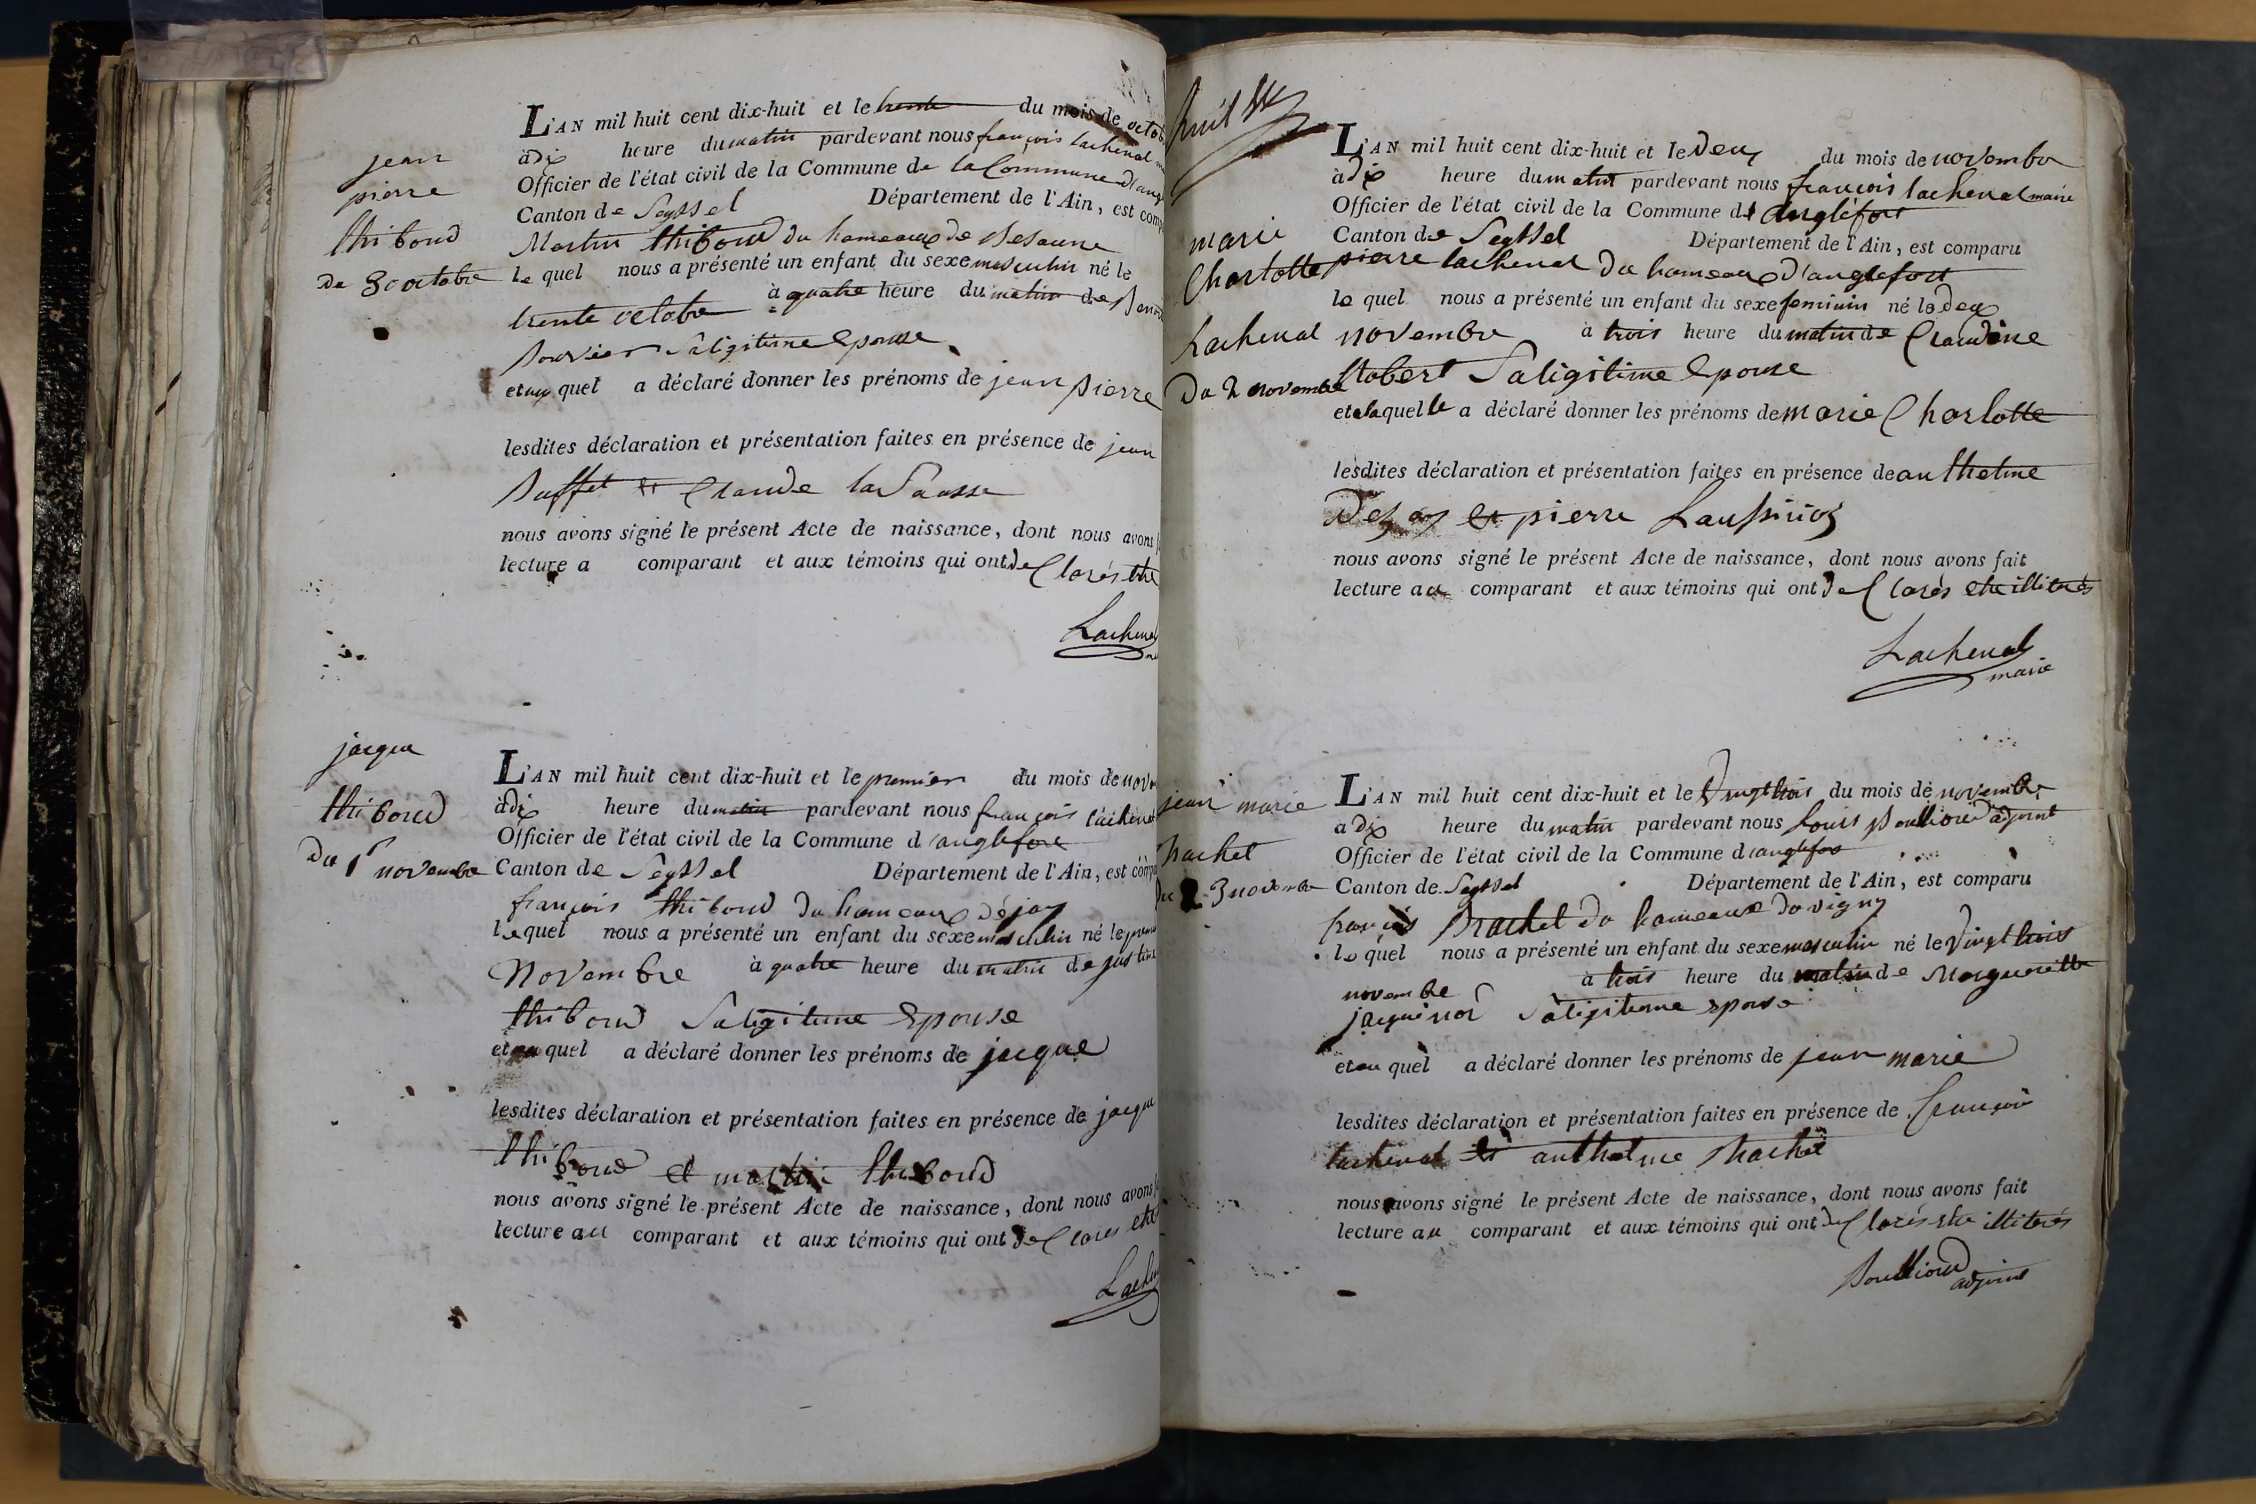 jean
pierre
thiboud
du 30 octobre
L'AN mil huit cent dix-huit et le trente du mois de octob
à dix heure du matin pardevant nous françois lachenal
Officier de l'état civil de la Commune de la Commune d'ang
Canton de Seyssel Département de l'Ain, est comp
Martin thiboud du hameaux de
le quel nous a présenté un enfant du sexe masculin né le
trente octobre à quatre heure du matin de
Bouvier sa ligitime Epouse
et au quel a déclaré donner les prénoms de jean pierre
lesdites déclaration et présentation faites en présence de jean
Buffet et Claude
nous avons signé le présent Acte de naissance, dont nous avons
lecture a comparant et aux témoins qui ont déClarés etre
Lachenal
jacque
thiboud
du 1r novembre
L'AN mil huit cent dix-huit et le premier du mois de nov
à dix heure du matin pardevant nous françois lachenal
Officier de l'état civil de la Commune d'anglefort
Canton de Seyssel Département de l'Ain, est compa
françois thiboud du hameaux
le quel nous a présenté un enfant du sexe masculin né le premi
Novembre à quatre heure du matin de justine
thiboud sa ligitime Epouse
et au quel a déclaré donner les prénoms de jacque
lesdites déclaration et présentation faites en présence de jacque
thiboud et martin thiboud
nous avons signé le présent Acte de naissance, dont nous avons
lecture au comparant et aux témoins qui ont déClarés etre
Lachen
huit
marie
Charlotte
Lachenal
Du 2 novembre
L'AN mil huit cent dix-huit et le Deux du mois de novembre
à dix heure du matin pardevant nous françois lachenal maire
Officier de l'état civil de la Commune d'anglefort
Canton de Seyssel Département de l'Ain, est comparu
pierre lachenal du hameaux d'anglefort
le quel nous a présenté un enfant du sexe feminin né le deux
novembre à trois heure du matin de Claudine
Robert sa ligitime Epouse
et a laquelle a déclaré donner les prénoms de marie Charlotte
lesdites déclaration et présentation faites en présence de anthelme
et pierre
nous avons signé le présent Acte de naissance, dont nous avons fait
lecture au comparant et aux témoins qui ont déClarés etre illiterés
Lachenal
maire
jean marie
Brachet
du 23 novembre
L'AN mil huit cent dix-huit et le Vingt trois du mois de novembre
à dix heure du matin pardevant nous Louis Boullioud adjoint
Officier de l'état civil de la Commune d'anglefor
Canton de Seyssel Département de l'Ain, est comparu
françois Brachet du hameaux
le quel nous a présenté un enfant du sexe masculin né le Vingt trois
novembre à trois heure du matin de Margueritte
jaquinod sa ligitiome Epouse
et au quel a déclaré donner les prénoms de jean marie
lesdites déclaration et présentation faites en présence de françois
lachenal et anthelme Brachet
nous avons signé le présent Acte de naissance, dont nous avons fait
lecture au comparant et aux témoins qui ont déClarés etre illiterés
Boullioud
adjoint